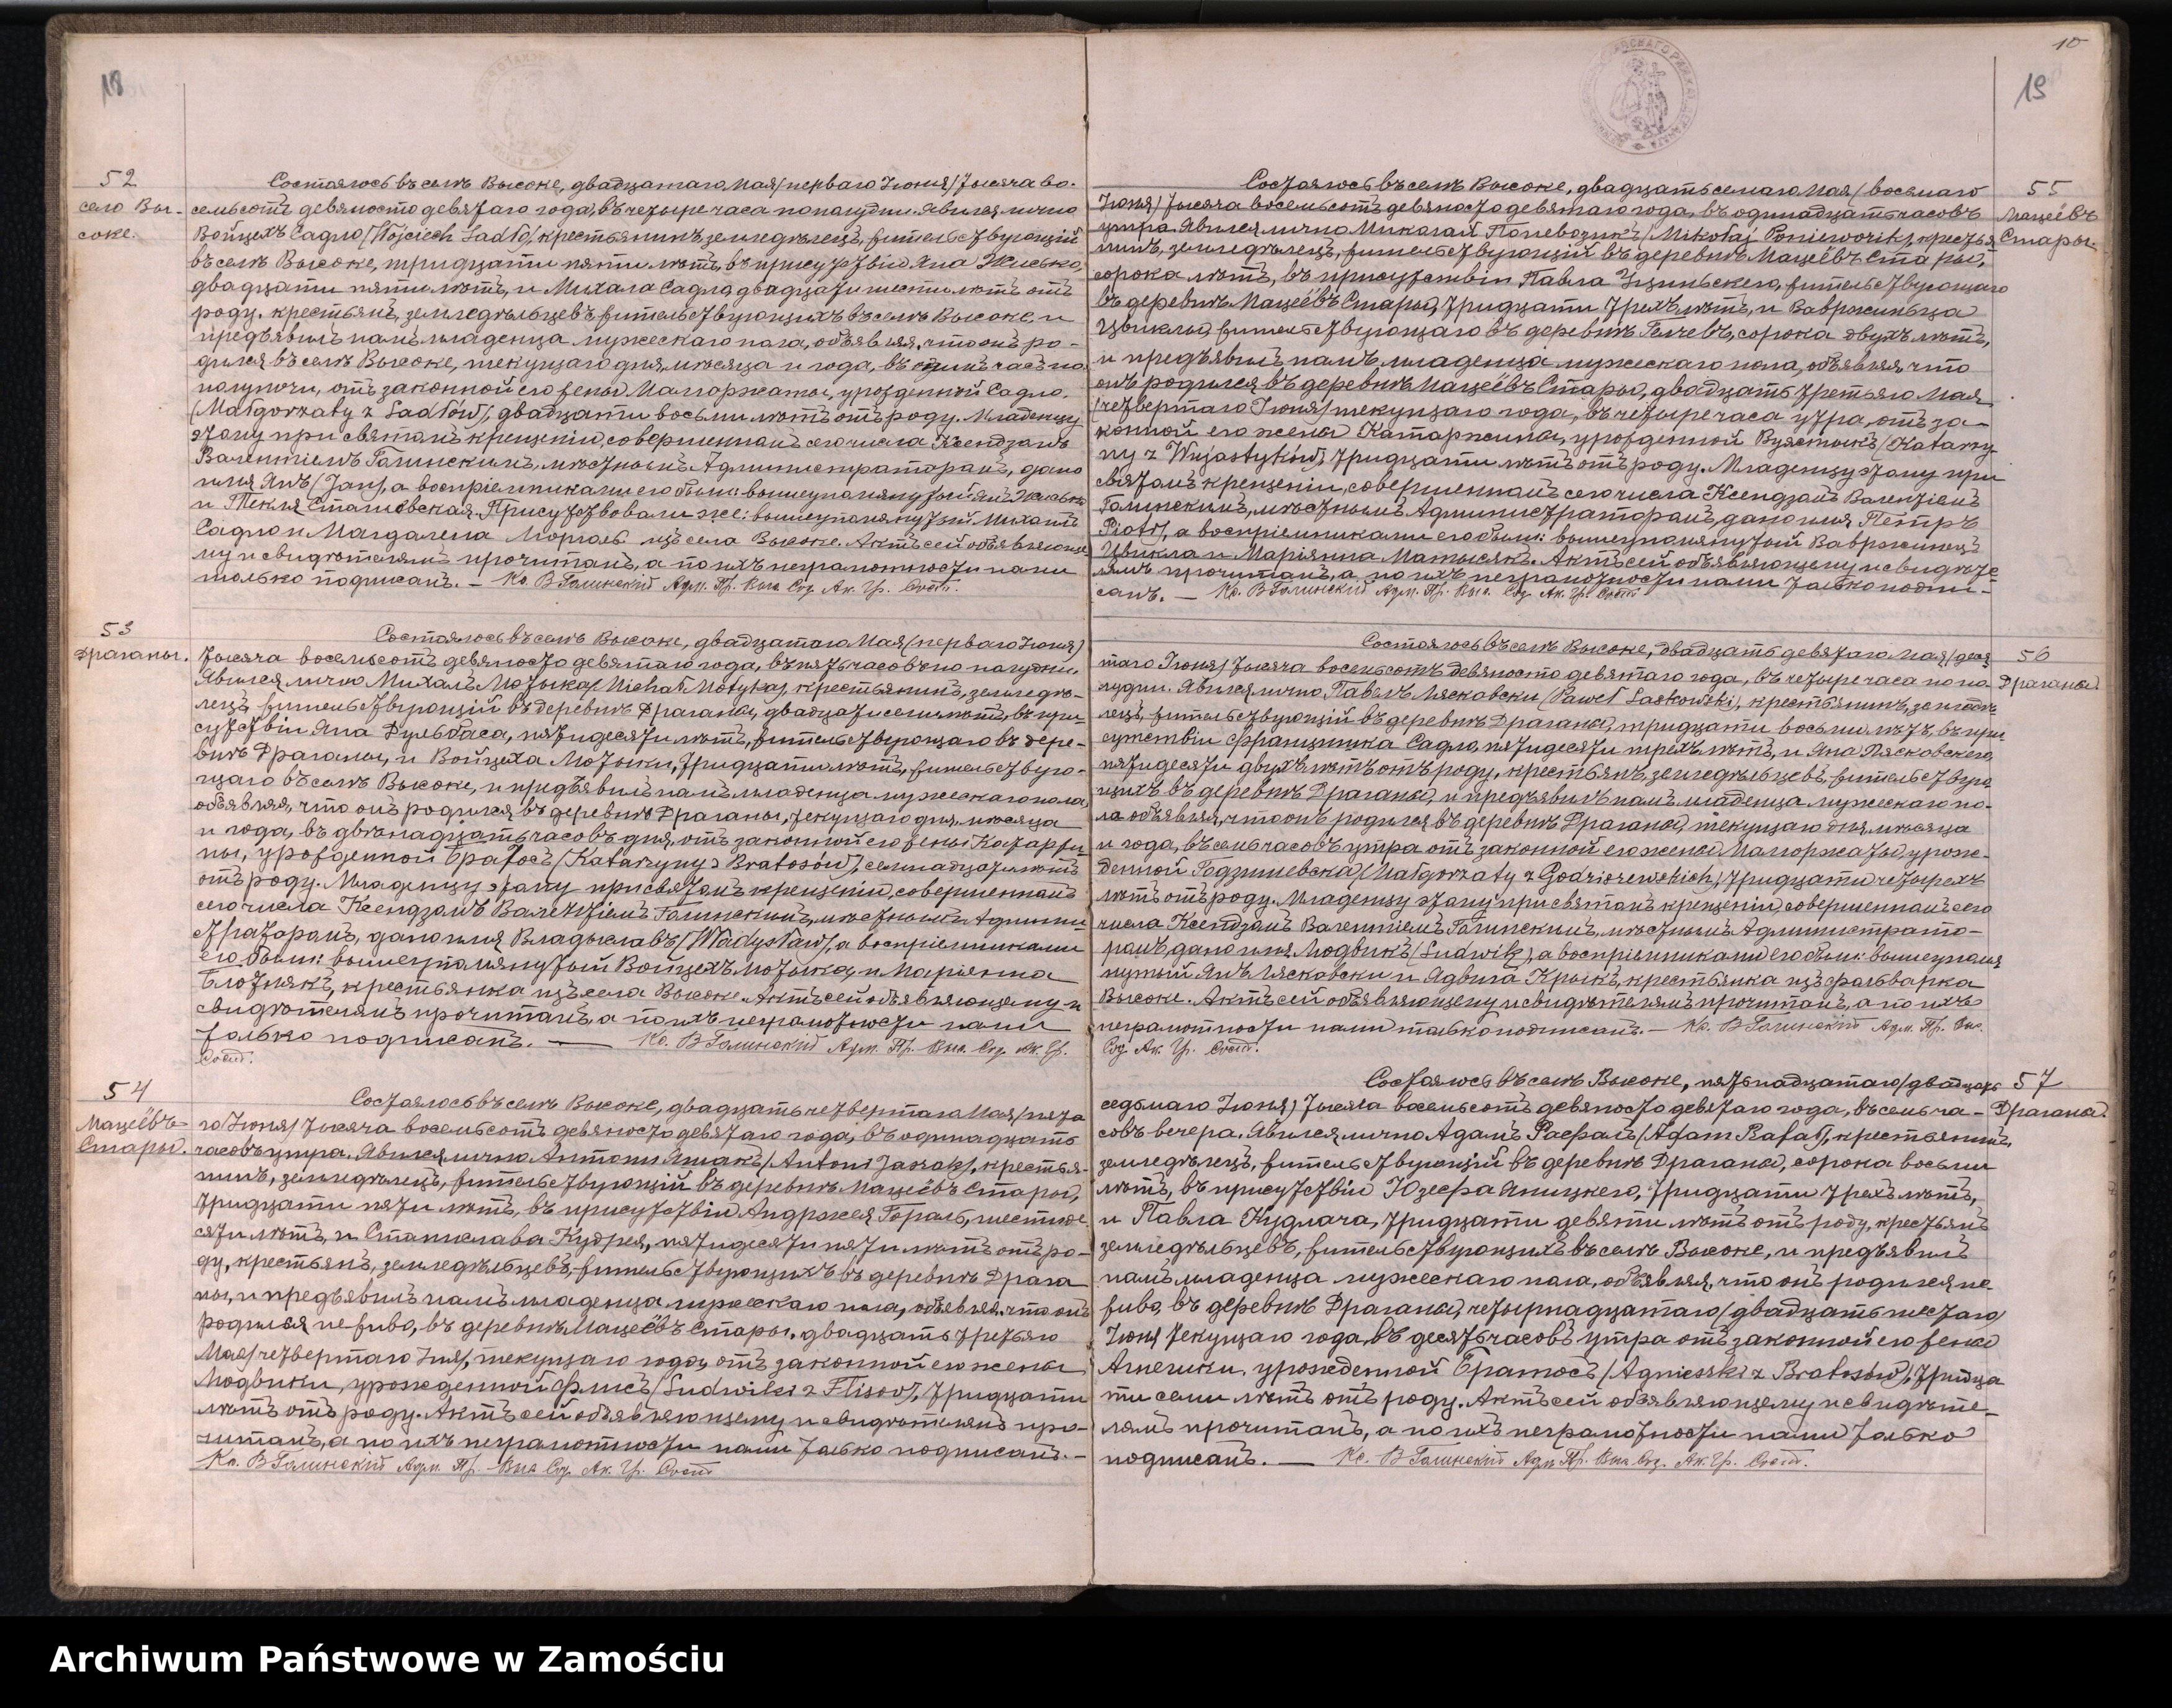 18
52
село Вы-
соке.
Состоялось въ селѣ Высоке, двадцатаго Мая /перваго Іюня/ тысяча во-
семьсотъ девяносто девятаго года, въ четыре часа по полудни. Явился лично
Войцехъ Садло /Wojciech Sadło/, крестьянинъ земледѣлецъ, жительствующій
въ селѣ Высоке, тридцати пяти лѣтъ, въ присутствіи Яна
двадцати пяти лѣтъ, и Михала Садла двадцати шести лѣтъ отъ
роду, крестьянъ, земледѣльцевъ, жительствующихъ въ селѣ Высоке, и
предъявилъ намъ младенца мужескаго пола, объявляя, что онъ ро-
дился въ селѣ Высоке, текущаго дня, мѣсяца и года, въ часъ по
полуночи, отъ законной его жены Малгоржаты, урожденной Садло,
/Małgorzaty z Sadłów/, двадцати восьми лѣтъ отъ роду. Младенцу
этому при святомъ крещеніи, совершенномъ сего числа Ксендзомъ
Валентіемъ Голинскимъ, мѣстнымъ Администраторомъ, дано
имя Янъ /Jan/, а воспріемниками его были: вышеупомянутый Янъ
и Текля Становская. Присутствовали же: вышеупомянутый Михалъ
Садло и Магдалена изъ села Высоке. Актъ сей объявляюще-
му и свидѣтелямъ прочитанъ, а по ихъ неграмотности нами
только подписанъ. — Кс. В Голинскій Адм. Пр. Выс. Сод. Ак. Гр. Сост.
53
Драганы.
Состоялось въ селѣ Высоке, двадцатаго Мая /перваго Іюня/
тысяча восемьсотъ девяносто девятаго года, въ пять часовъ по полудни.
Явился лично Михалъ Мотыка /Michał Motyka/, крестьянинъ, земледѣ-
лецъ, жительствующій въ деревнѣ Драганы, двадцати семи лѣтъ, въ при-
сутствіи Яна Дульбаса, пятидесяти лѣтъ, жительствующаго въ дере-
внѣ Драганы, и Войцеха Мотыки, тридцати лѣтъ, жительствую-
щаго въ селѣ Высоке, и предъявилъ намъ младенца мужескаго пола
объявляя, что онъ родился въ деревнѣ Драганы, текущаго дня, мѣсяца
и года, въ двѣнадцать часовъ дня, отъ законной его жены Катаржи-
ны, урожденной Братосъ /Katarzyny z Bratosów/, семнадцати лѣтъ
отъ роду. Младенцу этому при святомъ крещеніи, совершенномъ
сего числа Ксендзомъ Валентіемъ Голинскимъ, мѣстнымъ Админи-
страторомъ, дано имя Владыславъ /Władysław/, а воспріемниками
его были: вышеупомянутый Войцехъ Мотыка, и Маріянна
крестьянка изъ села Высоке. Актъ сей объявляющему и
свидѣтелямъ прочитанъ, а по ихъ неграмотности нами
только подписанъ. — Кс. В Голинскій Адм. Пр. Выс. Сод. Ак. Гр.
Сост.
54
Мацеёвъ
Стары.
Состоялось въ селѣ Высоке, двадцать четвертаго Мая /пята-
го Іюня/ тысяча восемьсотъ девяносто девятаго года, въ одинадцать
часовъ утра. Явился лично Антони /Antoni/, крестья-
нинъ, земледѣлецъ, жительствующій въ деревнѣ Мацеёвъ Стары,
тридцати пяти лѣтъ, въ присутствіи Анджея Гораль, шестиде-
сяти лѣтъ, и Станислава Кудрея, пятидесяти пяти лѣтъ отъ ро-
ду, крестьянъ, земледѣльцевъ, жительствующихъ въ деревнѣ Драга
ны, и предъявилъ намъ младенца мужескаго пола, объявляя, что онъ
родился не живо, въ деревнѣ Мацеёвъ Стары, двадцать третьяго
Мая /четвертаго Іюня/, текущаго года, отъ законной его жены
Людвики, урожденной Флисъ /Ludwiki z Flisów/, тридцати
лѣтъ отъ роду. Актъ сей объявляющему и свидѣтелямъ про-
читанъ, а по ихъ неграмотности нами только подписанъ. —
Кс. В Голинскій Адм. Пр. Выс Сод. Ак. Гр. Сост
10
19
55
Мацеёвъ
Стары.
Состоялось въ селѣ Высоке, двадцать седьмаго Мая /восьмаго
Іюня/ тысяча восемьсотъ девяносто девятаго года, въ одинадцать часовъ
утра. Явился лично Миколай Поневозикъ /Mikołaj Poniewozik/, крестья-
нинъ, земледѣлецъ, жительствующій въ деревнѣ Мацеёвъ Стары,
сорока лѣтъ, въ присутствіи Павла жительствующаго
въ деревнѣ Мацеёвъ Стары, тридцати трехъ лѣтъ, и Вавржинца
Цвиклы, жительствующаго въ деревнѣ сорока двухъ лѣтъ,
и предъявилъ намъ младенца мужескаго пола, объявляя, что
онъ родился въ деревнѣ Мацеёвъ Стары, двадцать третьяго Мая
/четвертаго Іюня/ текущаго года, въ четыре часа утра, отъ за-
конной его жены Катаржины, урожденной Вуястыкъ /Katarzy-
ny z Wujastyków/, тридцати лѣтъ отъ роду. Младенцу этому при
святомъ крещеніи, совершенномъ сего числа Ксендзомъ Валентіемъ
Голинскимъ, мѣстнымъ Администраторомъ, дано имя Петръ
/Piotr/, а воспріемниками его были: вышеупомянутый Вавржинецъ
Цвикла и Маріянна Матысекъ. Актъ сей объявляющему и свидѣте-
лямъ прочитанъ, а по ихъ неграмотности нами только подпи-
санъ. — Кс. В Голинскій Адм. Пр. Выс. Сод. Ак. Гр. Сост
56
Драганы.
Состоялось въ селѣ Высоке, двадцать девятаго Мая /деся-
таго Іюня/ тысяча восемьсотъ девяносто девятаго года, въ четыре часа по по-
лудни. Явился лично, Павелъ Лясковски /Paweł Laskowski/, крестьянинъ, земледѣ-
лецъ, жительствующій въ деревнѣ Драганы, тридцати восьми лѣтъ, въ при
сутствіи Францишка Садло, пятидесяти трехъ лѣтъ, и Яна Лясковскего,
пятидесяти двухъ лѣтъ отъ роду, крестьянъ, земледѣльцевъ, жительствую
щихъ въ деревнѣ Драганы, и предъявилъ намъ младенца мужескаго по-
ла объявляя, что онъ родился въ деревнѣ Драганы, текущаго дня, мѣсяца
и года, въ семь часовъ утра отъ законной его жены Малгоржаты, урож-
денной Годзишевска /Małgorzaty z Godziszewskich/, тридцати четырехъ
лѣтъ отъ роду. Младенцу этому при святомъ крещеніи, совершенномъ сего
числа Ксендзомъ Валентіемъ Голинскимъ, мѣстнымъ Администрато-
ромъ, дано имя Людвикъ /Ludwik/, а воспріемниками его были: вышеупомя
нутый Янъ Лясковски и Ядвига Крыкъ, крестьянка изъ фольварка
Высоке. Актъ сей объявляющему и свидѣтелямъ прочитанъ, а по ихъ
неграмотности нами только подписанъ. — Кс. В Голинскій Адм. Пр. Выс.
Сод. Ак. Гр. Сост.
57
Драганы.
Состоялось въ селѣ Высоке, пятьнадцатаго /двадцать
седьмаго Іюня/ тысяча восемьсотъ девяносто девятаго года, въ семь ча-
совъ вечера. Явился лично Адамъ Рафалъ /Adam Rafał/, крестьянинъ,
земледѣлецъ, жительствующій въ деревнѣ Драганы, сорока восьми
лѣтъ, въ присутствіи Юзефа Яницкего, тридцати трехъ лѣтъ,
и Павла Кудлача, тридцати девяти лѣтъ отъ роду, крестьянъ
земледѣльцевъ, жительствующихъ въ селѣ Высоке, и предъявилъ
намъ младенца мужескаго пола, объявляя, что онъ родился не-
живо, въ деревнѣ Драганы, четырнадцатаго /двадцать шестаго/
Іюня текущаго года, въ десять часовъ утра отъ законной его жены
Агнешки, урожденной Братосъ /Agnieszki z Bratosów/, тридца
ти семи лѣтъ отъ роду. Актъ сей объявляющему и свидѣте-
лямъ прочитанъ, а по ихъ неграмотности нами только
подписанъ. — Кс. В Голинскій Адм. Пр. Выс. Сод. Ак. Гр. Сост.
Archiwum Państwowe w Zamościu